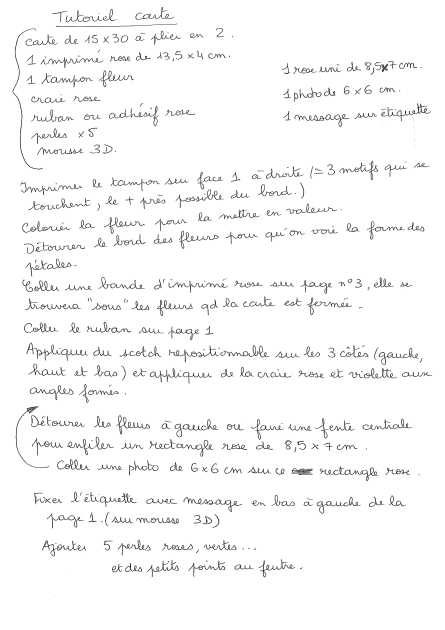 Tutoriel carte
Carte de 15 x 30 à plier en 2.
1 imprimé rose de 13,5 x 4 cm.
1 tampon fleur
craie rose
ruban ou adhésif rose
perles x 5
mousse 3D.
1 rose uni de 8,5 x 7 cm.
1 photo de 6 x 6 cm.
1 message sur étiquette
Imprimer le tampon sur face 1 à droite (≃ 3 motifs qui se
touchent, le + près possible du bord.)
Colorier la fleur pour la mettre en valeur.
Détourer le bord des fleurs pour qu'on voie la forme des
pétales.
Coller une bande d'imprimé rose sur page n°3, elle se
trouvera "sous" les fleurs qd la carte est fermée.
Coller le ruban sur page 1
Appliquer du scotch repositionnable sur les 3 côtés (gauche,
haut et bas) et appliquer de la craie rose et violette aux
angles formés.
Détourer les fleurs à gauche ou faire une fente centrale
pour enfiler un rectangle rose de 8,5 x 7 cm.
Coller une photo de 6 x 6 cm sur ce rectangle rose.
Fixer l'étiquette avec message en bas à gauche de la
page 1. (sur mousse 3D)
Ajouter 5 perles roses, vertes...
et des petits points au feutre.